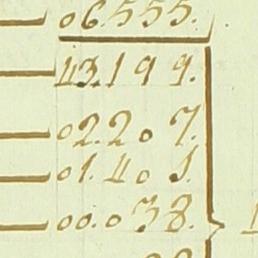 06555.
43.199.
02.20 7.
01.40 1.
00.038.